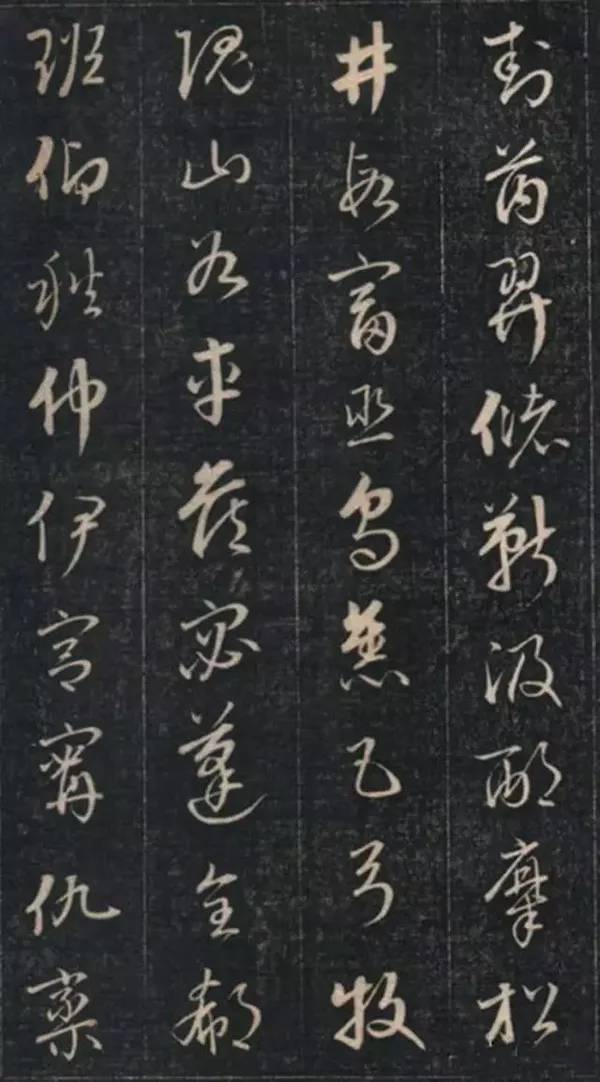 封芮羿儲靳汲邴糜松
井段富巫烏焦巴弓牧
隗山谷車侯宓蓬全郗
班仰秋仲伊宮甯仇欒